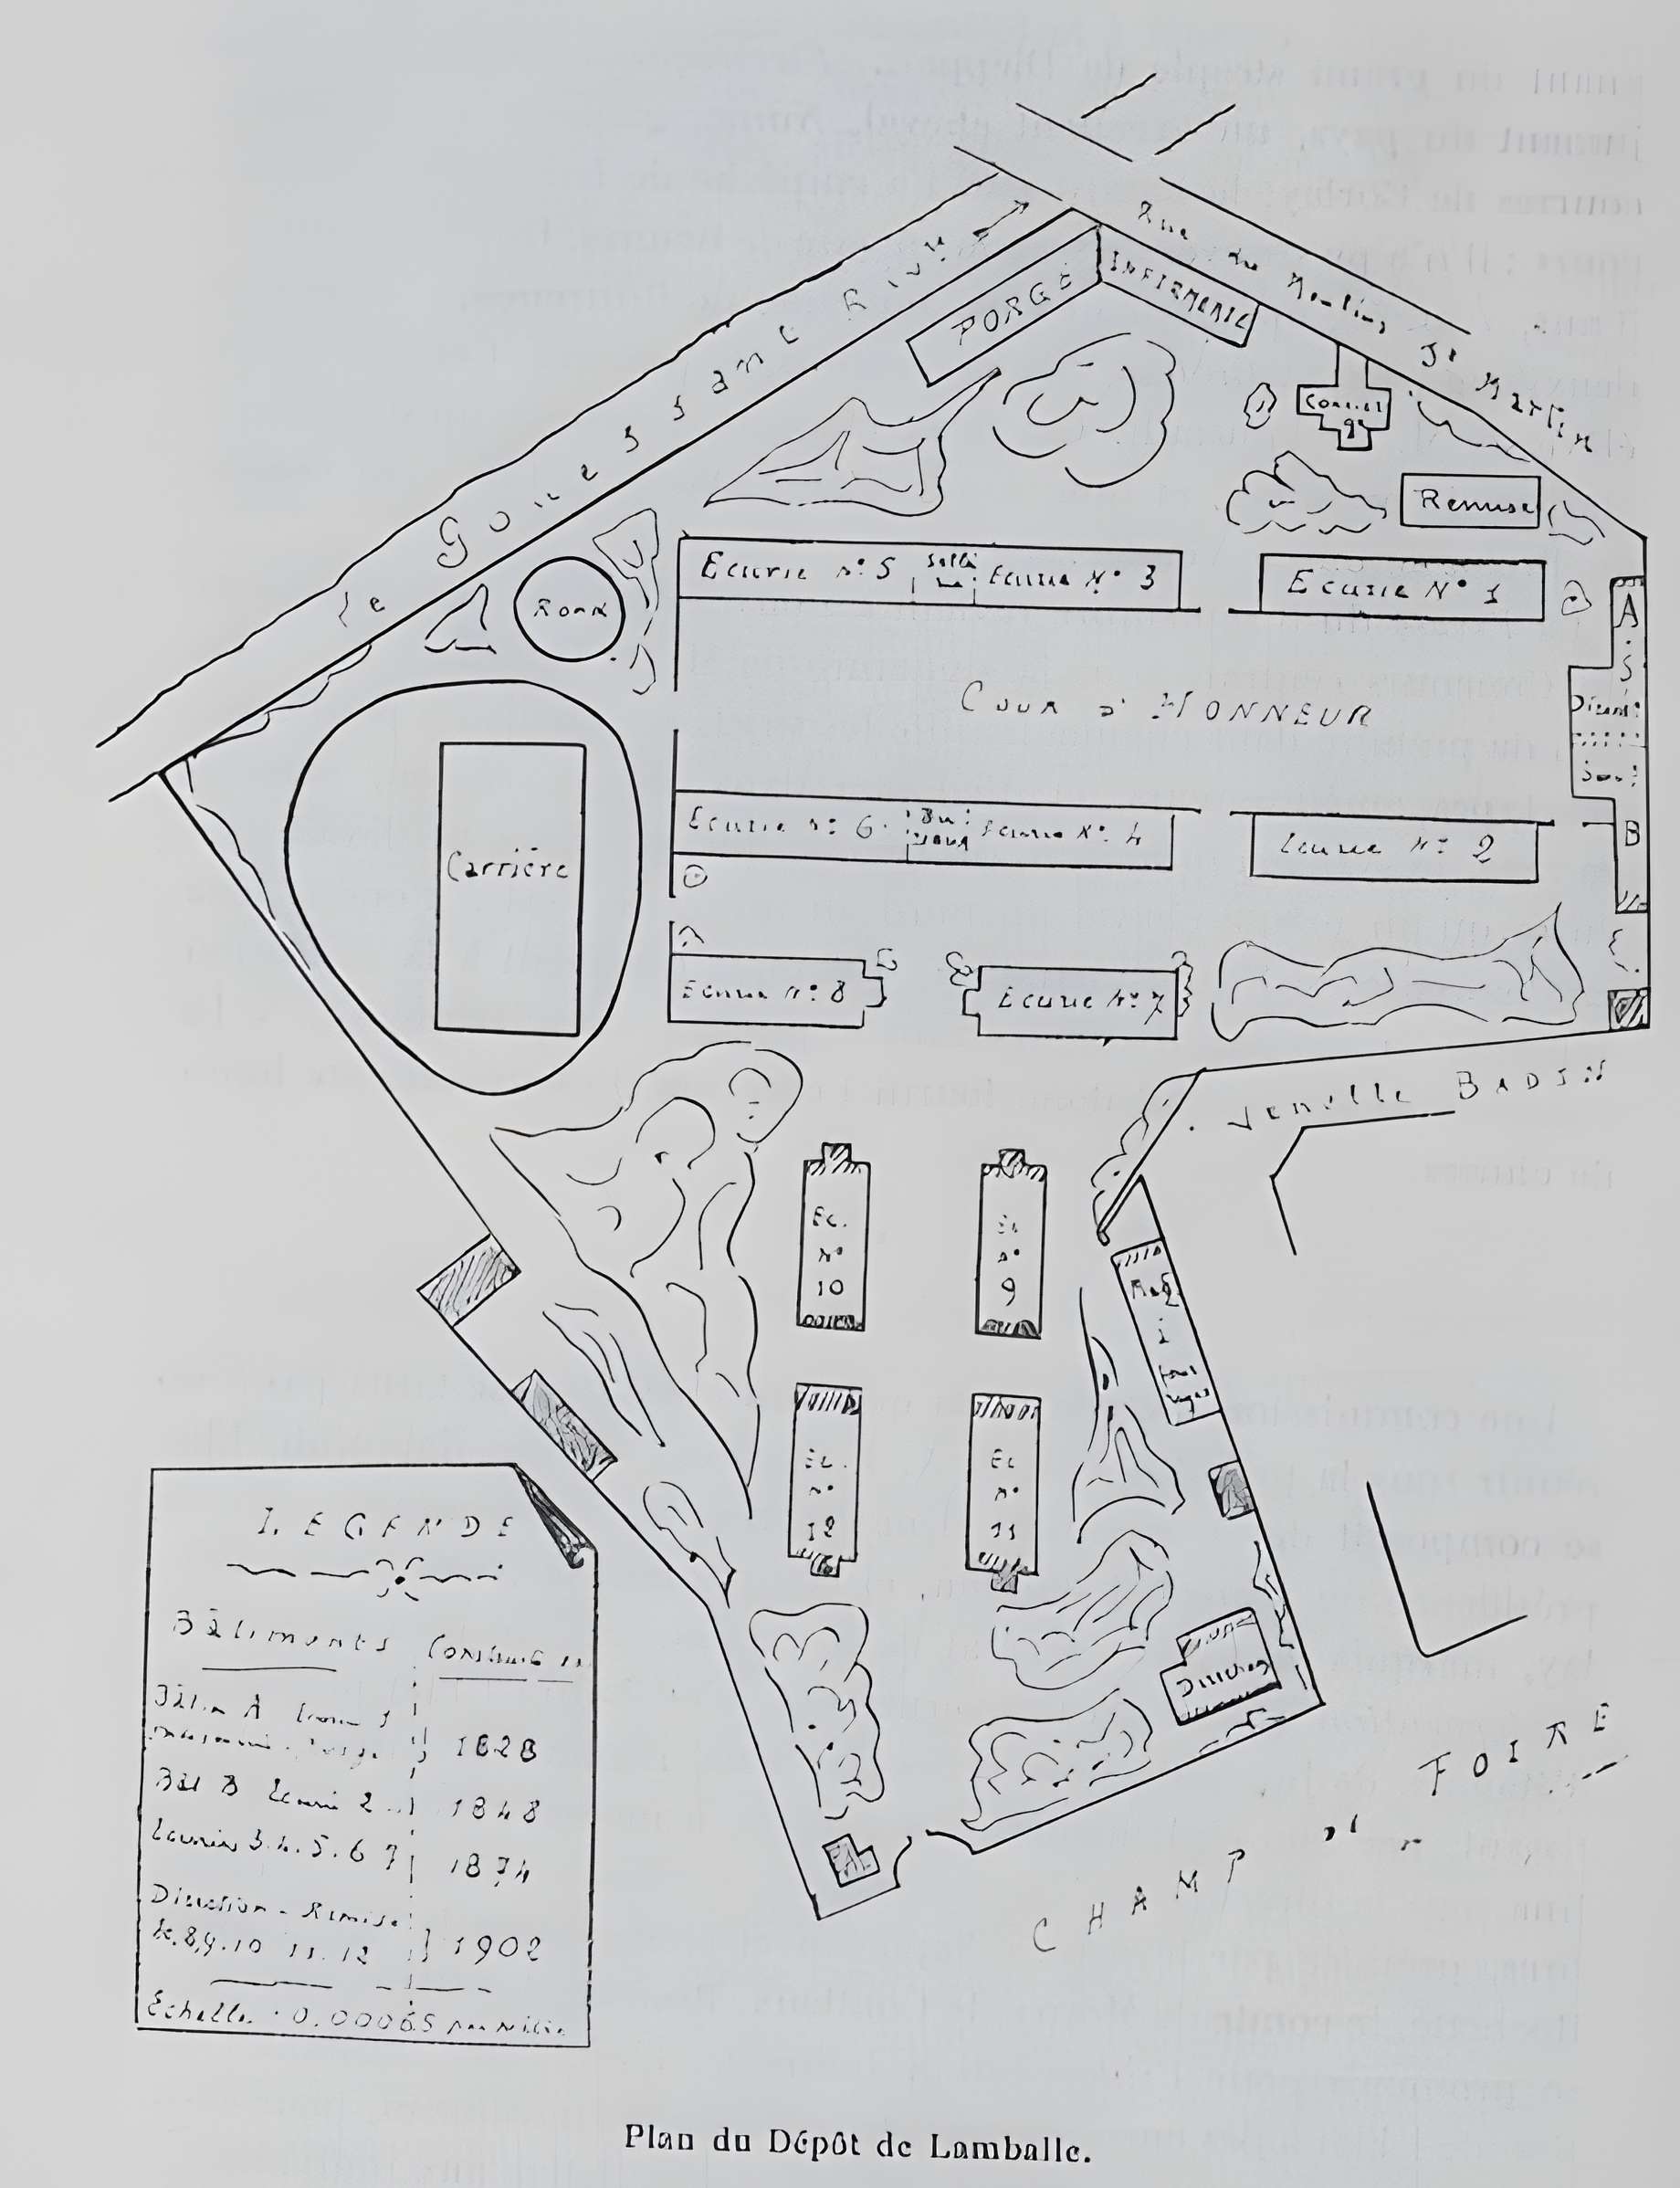 Rue du Moulin St Martin
Le Gouessant Riv.
FORGE
INFIRMERIE
Remise
Ecurie N° 5
Selle
Ecurie N° 3
Ecurie N° 1
Rond
A
COUR D'HONNEUR
Carrière
Ecurie N° 6
Ecurie N° 4
Ecurie N° 2
B
Ecurie N° 8
Ecurie N° 7
Venelle BADIN
Ec.
N°
10
Ec
N°
9
Ec.
N°
12
Ec
N°
11
Direction
CHAMP de FOIRE
LEGENDE
Bâtiments Construits en
Bâtim A Ecurie 1
1828
Bât B Ecurie 2 1848
Ecuries 3.4.5.6 7 1874
Direction - Remise
Ec. 8.9.10 11.12 1902
Echelle 0.00065
Plan du Dépôt de Lamballe.